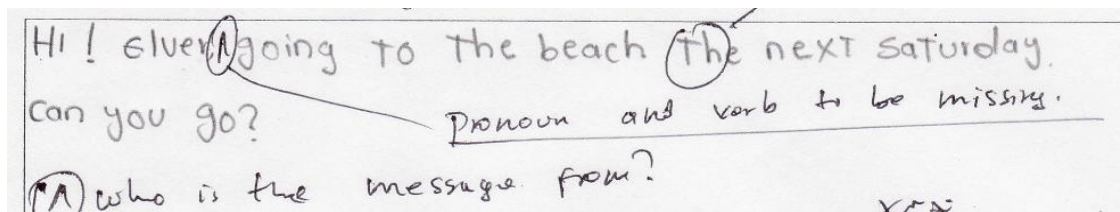 Hi! Elver ^ going to the beach the next saturday.
can you go?
pronoun and verb to be missing.
^ who is the message from?